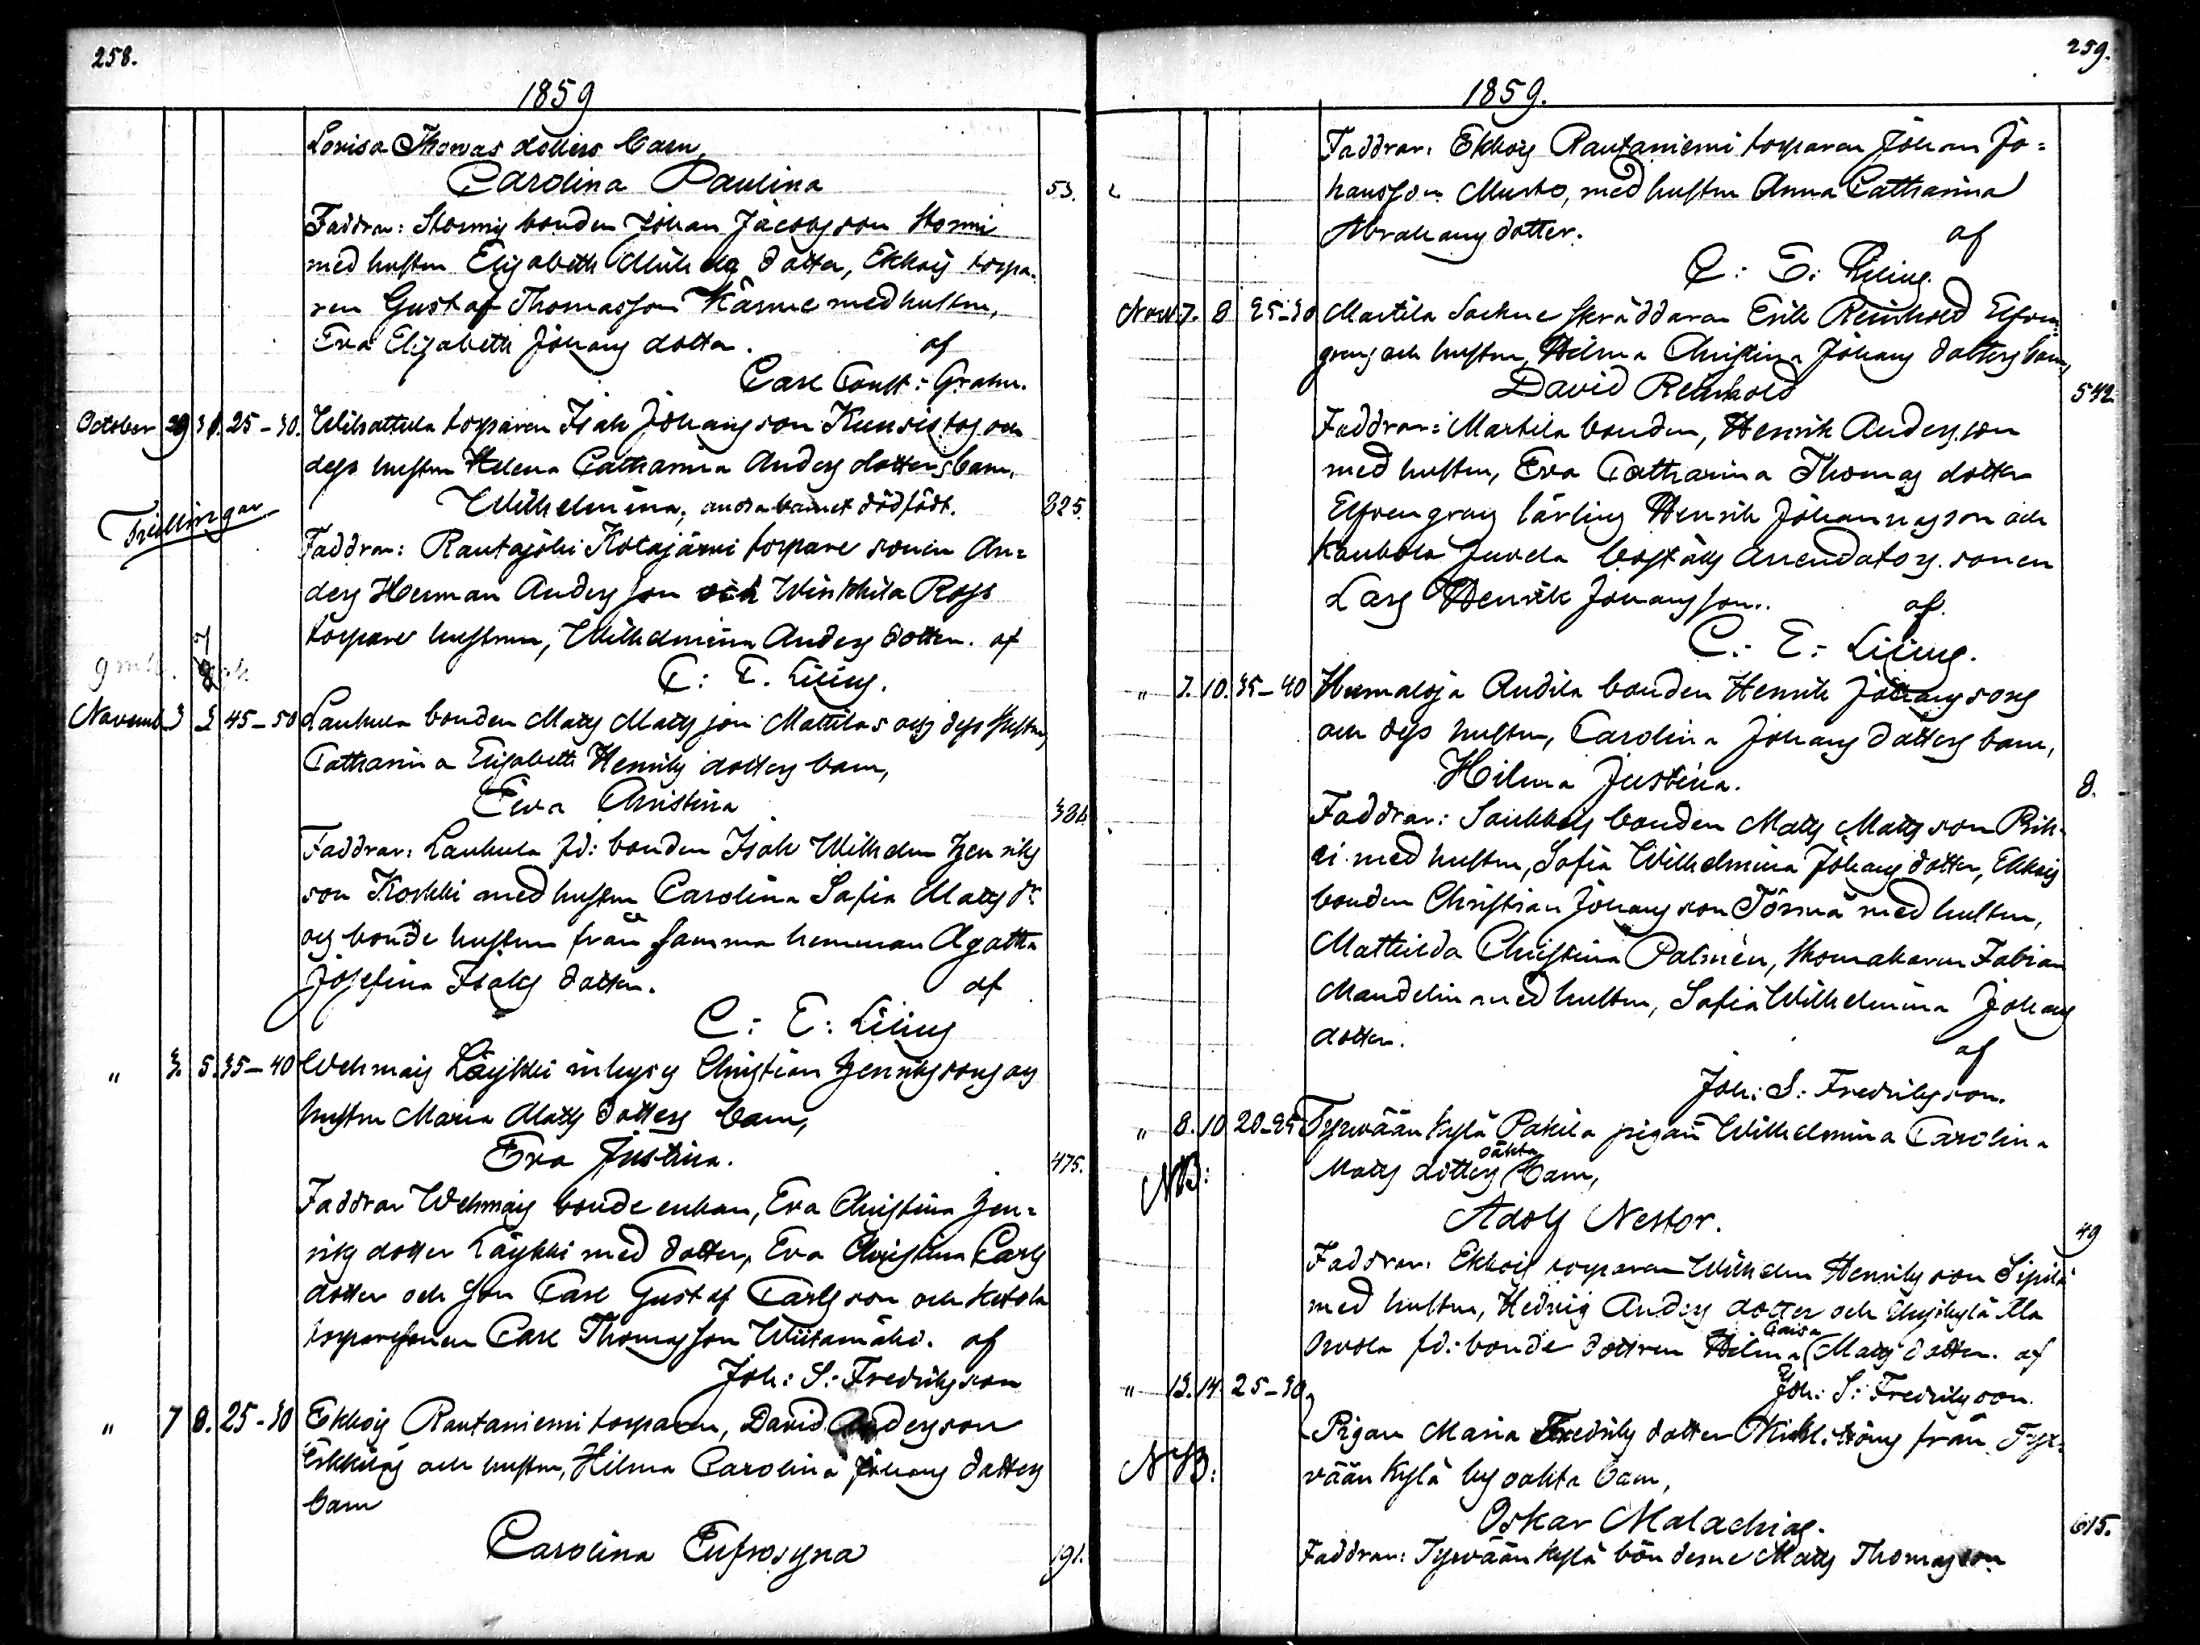 258.
1859
Lovisa Thomas dotters barn,
Carolina Paulina 53.
Faddrar: Stormis bonden Johan Jacobsson Stormi
med hustru Elisabeth Michels dotter, Ekkois torpa-
ren Gustaf Thomasson Kärme med hustru,
Eva Elisabeth Johans dotter. af
Carl Const: Grahn.
October 29 31. 25-30. torparen Isak Johansson Kuusistos och
dess hustru Helena Catharina Anders dotters barn,
Wilhelmina, andra barnet dödfödt. 825.
Faddrar: Rautajoki Kotajärvi torpare sonen An-
ders Herman Andersson och Winkkila Ross
torpare hustrun, Wilhelmina Anders dotter. af
C: E. Lilius.
Novemb. 3 45-50 Laukula bonden Mats Matsson Mattilas och dess hustrus
Catharina Elisabeth Henriks dotters barn,
Eva Christina 386.
Faddrar: Laukula fd: bonden Isak Wilhelm Henriks
son Koskki med hustru Carolina Sofia Mats dr
och bonde hustrun från samma hemman Agatha
Josefina Isaks dotter. af
C: E: Lilius
" 3. 5. 35-40 Wehmais Läykki inhyses Christian Henrikssons och
hustru Maria Mats dotters barn,
Eva Justina. 475.
Faddrar Wehmais bonde enkan, Eva Christina Hen-
riks dotter Läykki med dotter, Eva Christina Carls
dotter och son Carl Gustaf Carlsson och Ketola
torparesonen Carl Thomasson Wiitamäki. af
Joh: S: Fredriksson
" 7 8. 25-30 Ekkois Rautaniemi torparen, David Andersson
Erkkiläs och hustru, Hilma Carolina Johans dotters
barn
Carolina Eufrosyna 191.
259.
1859.
Faddrar: Ekkois Rautaniemi torparen Johan Jo-
hansson Musto, med hustru Anna Catharina
Abrahams dotter. af
C: E: Lilius.
Nov. 7. 8 25-30 Martila Sockne skräddaren Erik Reinhold Elfven-
grens och hustru, Hilma Christina Johans dotters barn,
David Reinhold 542.
Faddrar: Martila bonden, Henrik Andersson
med hustru, Eva Catharina Thomas dotter
Elfvengrens lärling Henrik Johannesson och
Kaukola Juvela boställs arrendators sonen
Lars Henrik Johansson. af.
C: E: Lilius.
" 7. 10. 35-40 Humaloja Andila bonden Henrik Johanssons
och dess hustru, Carolina Johans dotters barn,
Hilma Justina. 8.
Faddrar: bonden Mats Matsson
med hustru, Sofia Wilhelmina Johans dotter, Ekkois
bonden Christian Johansson Törmä med hustru,
Mathilda Christina Palmén, skomakaren Fabian
Mandelin med hustru, Sofia Wilhelmina Johans
dotter. af
Joh: S: Fredriksson.
" 8. 10 20-25 Tyrvään kylä Pakila pigan Wilhelmina Carolina
NB: Mats dotters oäkta barn,
Adolf Nestor. 49
Faddrar: Ekkois torparen Wilhelm Henriksson Sipilä
med hustru, Hedvig Anders dotter och Ala
Orvola fd: bonde dottren Gaisa Mats dotter. af
Joh: S: Fredriksson.
" 13. 14 25-30
Pigan Maria Fredriks dotter från Tyr-
NB: vään kylä by oäkta barn,
Oskar Malachias. 615.
Faddrar: Tyrvään kylä bönderne Mats Thomasson